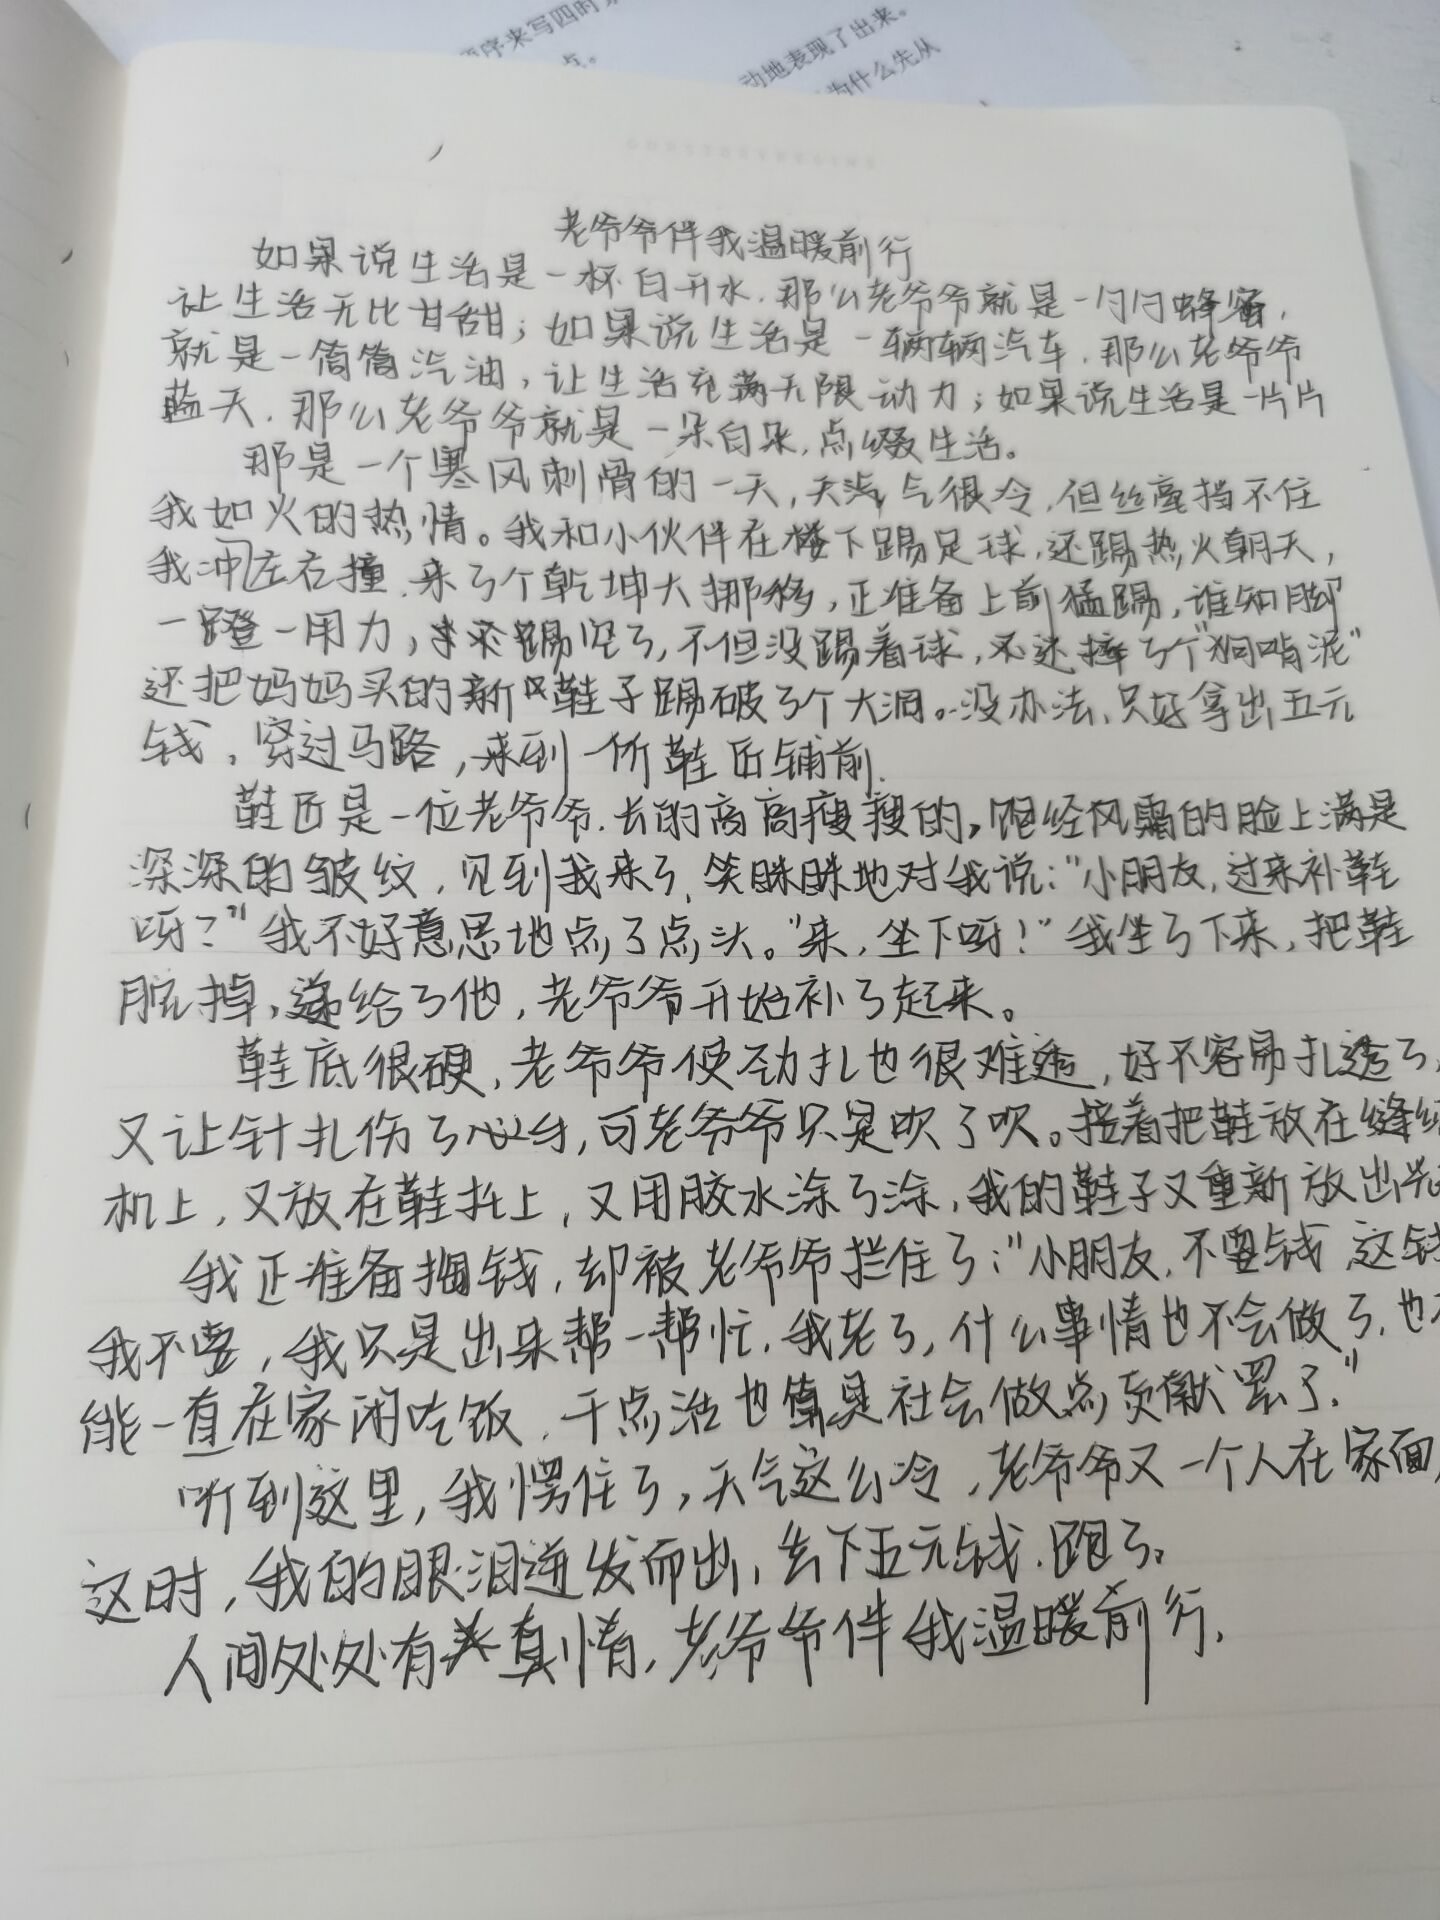 序来写四时
点。
动地表现了出来。
为什么先从
老爷爷伴我温暖前行
如果说生活是一杯白开水，那么老爷爷就是一闩闩蜂蜜，
让生活无比甘甜；如果说生活是一辆辆汽车，那么老爷爷
就是一筒筒汽油，让生活充满无限动力；如果说生活是一片片
蓝天，那么老爷爷就是一朵白朵，点缀生活。
那是一个寒风刺骨的一天，天气很冷，但丝毫挡不住
我如火的热情。我和小伙伴在楼下踢足球，还踢热火朝天，
我冲左右撞，来了个乾坤大挪移，正准备上前猛踢，谁知脚
一蹬一用力，踢空了，不但没踢着球，还摔了个“狗啃泥”
还把妈妈买的新鞋子踢破了个大洞。没办法，只好拿出五元
钱，穿过马路，来到一价鞋匠铺前.
鞋匠是一位老爷爷，长的高高瘦瘦的，饱经风霜的脸上满是
深深的皱纹，见到我来了，笑眯眯地对我说：“小朋友，过来补鞋
呀？”我不好意思地点了点头。“来，坐下呀！”我坐了下来，把鞋
脱掉，递给了他，老爷爷开始补了起来。
鞋底很硬，老爷爷使劲扎也很难透，好不容易扎透了，
又让针扎伤了，可老爷爷只是吹了吹。接着把鞋放在缝
机上，又放在鞋托上，又用胶水涂了涂，我的鞋子又重新放出
我正准备掏钱，却被老爷爷拦住了：“小朋友，不要钱，这钱
我不要，我只是出来帮一帮忙，我老了，什么事情也不会做了，也
能一直在家闲吃饭，干点活也算是社会做点贡献罢了.”
听到这里，我愣住了，天气这么冷，老爷爷又一个人在家面，
这时，我的眼泪迸发而出，丢下五元钱，跑了。
人间处处有真情，老爷爷伴我温暖前行.